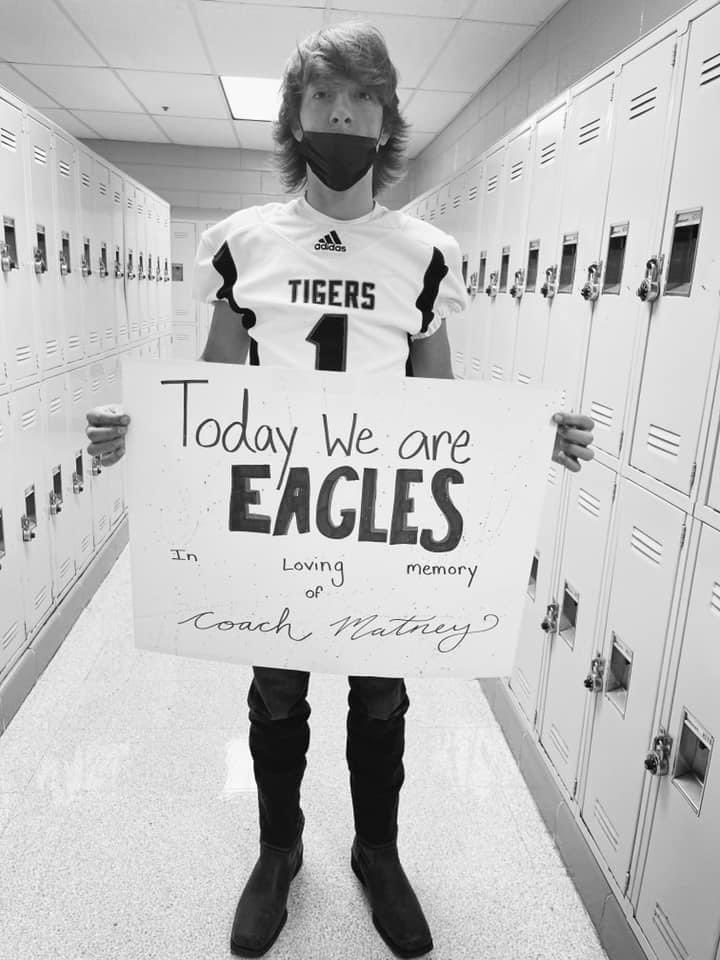 adidas
TIGERS
1
Today We are
EAGLES
In Loving memory
of
Coach Matney